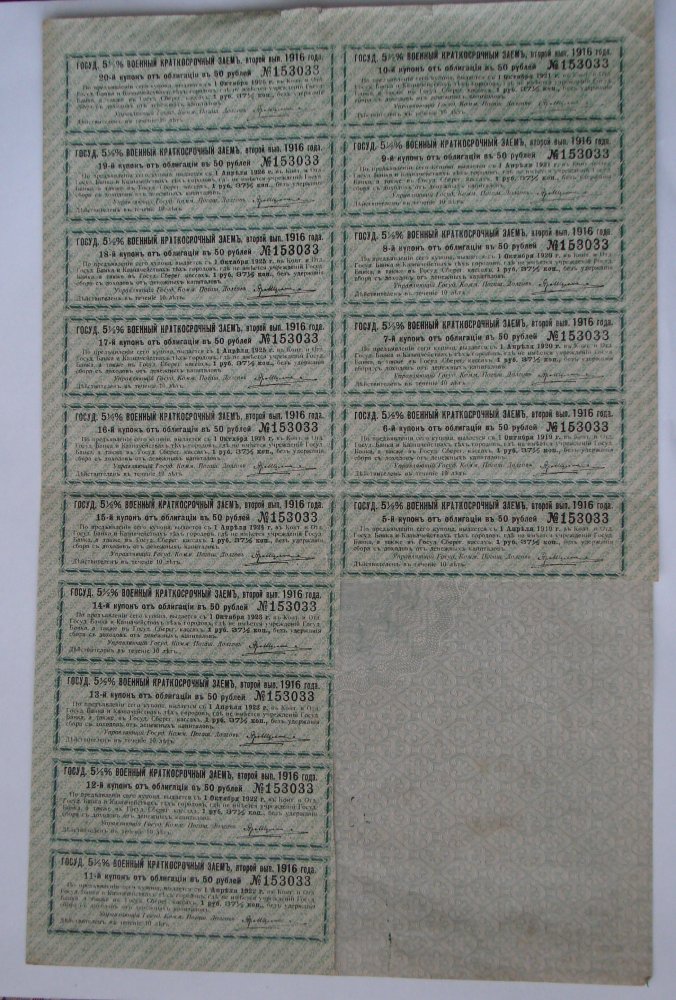 ГОСУД. 5½% ВОЕННЫЙ КРАТКОСРОЧНЫЙ ЗАЕМЪ, второй вып. 1916 года.
20-й купонъ отъ облигаціи въ 50 рублей №153033
По предъявленіи сего купона, выдается съ 1 Октября 1926 г. въ Конт. и Отд.
Госуд. Банка и Казначействахъ тѣхъ городовъ, гдѣ не имѣется учрежденій Госуд.
Банка, а также въ Госуд. Сберег. кассахъ, 1 руб. 37½ коп., безъ удержанія
сбора съ доходовъ отъ денежныхъ капиталовъ.
Управляющій Госуд. Комм. Погаш. Долговъ
Дѣйствителенъ въ теченіе 10 лѣтъ.
ГОСУД. 5½% ВОЕННЫЙ КРАТКОСРОЧНЫЙ ЗАЕМЪ, второй вып. 1916 года.
19-й купонъ отъ облигаціи въ 50 рублей №153033
По предъявленіи сего купона, выдается съ 1 Апрѣля 1926 г. въ Конт. и Отд.
Госуд. Банка и Казначействахъ тѣхъ городовъ, гдѣ не имѣется учрежденій Госуд.
Банка, а также въ Госуд. Сберег. кассахъ, 1 руб. 37½ коп., безъ удержанія
сбора съ доходовъ отъ денежныхъ капиталовъ.
Управляющій Госуд. Комм. Погаш. Долговъ
Дѣйствителенъ въ теченіе 10 лѣтъ.
ГОСУД. 5½% ВОЕННЫЙ КРАТКОСРОЧНЫЙ ЗАЕМЪ, второй вып. 1916 года.
18-й купонъ отъ облигаціи въ 50 рублей №153033
По предъявленіи сего купона, выдается съ 1 Октября 1925 г. въ Конт. и Отд.
Госуд. Банка и Казначействахъ тѣхъ городовъ, гдѣ не имѣется учрежденій Госуд.
Банка, а также въ Госуд. Сберег. кассахъ, 1 руб. 37½ коп., безъ удержанія
сбора съ доходовъ отъ денежныхъ капиталовъ.
Управляющій Госуд. Комм. Погаш. Долговъ
Дѣйствителенъ въ теченіе 10 лѣтъ.
ГОСУД. 5½% ВОЕННЫЙ КРАТКОСРОЧНЫЙ ЗАЕМЪ, второй вып. 1916 года.
17-й купонъ отъ облигаціи въ 50 рублей №153033
По предъявленіи сего купона, выдается съ 1 Апрѣля 1925 г. въ Конт. и Отд.
Госуд. Банка и Казначействахъ тѣхъ городовъ, гдѣ не имѣется учрежденій Госуд.
Банка, а также въ Госуд. Сберег. кассахъ, 1 руб. 37½ коп., безъ удержанія
сбора съ доходовъ отъ денежныхъ капиталовъ.
Управляющій Госуд. Комм. Погаш. Долговъ
Дѣйствителенъ въ теченіе 10 лѣтъ.
ГОСУД. 5½% ВОЕННЫЙ КРАТКОСРОЧНЫЙ ЗАЕМЪ, второй вып. 1916 года.
16-й купонъ отъ облигаціи въ 50 рублей №153033
По предъявленіи сего купона, выдается съ 1 Октября 1924 г. въ Конт. и Отд.
Госуд. Банка и Казначействахъ тѣхъ городовъ, гдѣ не имѣется учрежденій Госуд.
Банка, а также въ Госуд. Сберег. кассахъ, 1 руб. 37½ коп., безъ удержанія
сбора съ доходовъ отъ денежныхъ капиталовъ.
Управляющій Госуд. Комм. Погаш. Долговъ
Дѣйствителенъ въ теченіе 10 лѣтъ.
ГОСУД. 5½% ВОЕННЫЙ КРАТКОСРОЧНЫЙ ЗАЕМЪ, второй вып. 1916 года.
15-й купонъ отъ облигаціи въ 50 рублей №153033
По предъявленіи сего купона, выдается съ 1 Апрѣля 1924 г. въ Конт. и Отд.
Госуд. Банка и Казначействахъ тѣхъ городовъ, гдѣ не имѣется учрежденій Госуд.
Банка, а также въ Госуд. Сберег. кассахъ, 1 руб. 37½ коп., безъ удержанія
сбора съ доходовъ отъ денежныхъ капиталовъ.
Управляющій Госуд. Комм. Погаш. Долговъ
Дѣйствителенъ въ теченіе 10 лѣтъ.
ГОСУД. 5½% ВОЕННЫЙ КРАТКОСРОЧНЫЙ ЗАЕМЪ, второй вып. 1916 года.
14-й купонъ отъ облигаціи въ 50 рублей №153033
По предъявленіи сего купона, выдается съ 1 Октября 1923 г. въ Конт. и Отд.
Госуд. Банка и Казначействахъ тѣхъ городовъ, гдѣ не имѣется учрежденій Госуд.
Банка, а также въ Госуд. Сберег. кассахъ, 1 руб. 37½ коп., безъ удержанія
сбора съ доходовъ отъ денежныхъ капиталовъ.
Управляющій Госуд. Комм. Погаш. Долговъ
Дѣйствителенъ въ теченіе 10 лѣтъ.
ГОСУД. 5½% ВОЕННЫЙ КРАТКОСРОЧНЫЙ ЗАЕМЪ, второй вып. 1916 года.
13-й купонъ отъ облигаціи въ 50 рублей №153033
По предъявленіи сего купона, выдается съ 1 Апрѣля 1923 г. въ Конт. и Отд.
Госуд. Банка и Казначействахъ тѣхъ городовъ, гдѣ не имѣется учрежденій Госуд.
Банка, а также въ Госуд. Сберег. кассахъ, 1 руб. 37½ коп., безъ удержанія
сбора съ доходовъ отъ денежныхъ капиталовъ.
Управляющій Госуд. Комм. Погаш. Долговъ
Дѣйствителенъ въ теченіе 10 лѣтъ.
ГОСУД. 5½% ВОЕННЫЙ КРАТКОСРОЧНЫЙ ЗАЕМЪ, второй вып. 1916 года.
12-й купонъ отъ облигаціи въ 50 рублей №153033
По предъявленіи сего купона, выдается съ 1 Октября 1922 г. въ Конт. и Отд.
Госуд. Банка и Казначействахъ тѣхъ городовъ, гдѣ не имѣется учрежденій Госуд.
Банка, а также въ Госуд. Сберег. кассахъ, 1 руб. 37½ коп., безъ удержанія
сбора съ доходовъ отъ денежныхъ капиталовъ.
Управляющій Госуд. Комм. Погаш. Долговъ
Дѣйствителенъ въ теченіе 10 лѣтъ.
ГОСУД. 5½% ВОЕННЫЙ КРАТКОСРОЧНЫЙ ЗАЕМЪ, второй вып. 1916 года.
11-й купонъ отъ облигаціи въ 50 рублей №153033
По предъявленіи сего купона, выдается съ 1 Апрѣля 1922 г. въ Конт. и Отд.
Госуд. Банка и Казначействахъ тѣхъ городовъ, гдѣ не имѣется учрежденій Госуд.
Банка, а также въ Госуд. Сберег. кассахъ, 1 руб. 37½ коп., безъ удержанія
сбора съ доходовъ отъ денежныхъ капиталовъ.
Управляющій Госуд. Комм. Погаш. Долговъ
Дѣйствителенъ въ теченіе 10 лѣтъ.
ГОСУД. 5½% ВОЕННЫЙ КРАТКОСРОЧНЫЙ ЗАЕМЪ, второй вып. 1916 года.
10-й купонъ отъ облигаціи въ 50 рублей №153033
По предъявленіи сего купона, выдается съ 1 Октября 1921 г. въ Конт. и Отд.
Госуд. Банка и Казначействахъ тѣхъ городовъ, гдѣ не имѣется учрежденій Госуд.
Банка, а также въ Госуд. Сберег. кассахъ, 1 руб. 37½ коп., безъ удержанія
сбора съ доходовъ отъ денежныхъ капиталовъ.
Управляющій Госуд. Комм. Погаш. Долговъ
Дѣйствителенъ въ теченіе 10 лѣтъ.
ГОСУД. 5½% ВОЕННЫЙ КРАТКОСРОЧНЫЙ ЗАЕМЪ, второй вып. 1916 года.
9-й купонъ отъ облигаціи въ 50 рублей №153033
По предъявленіи сего купона, выдается съ 1 Апрѣля 1921 г. въ Конт. и Отд.
Госуд. Банка и Казначействахъ тѣхъ городовъ, гдѣ не имѣется учрежденій Госуд.
Банка, а также въ Госуд. Сберег. кассахъ, 1 руб. 37½ коп., безъ удержанія
сбора съ доходовъ отъ денежныхъ капиталовъ.
Управляющій Госуд. Комм. Погаш. Долговъ
Дѣйствителенъ въ теченіе 10 лѣтъ.
ГОСУД. 5½% ВОЕННЫЙ КРАТКОСРОЧНЫЙ ЗАЕМЪ, второй вып. 1916 года.
8-й купонъ отъ облигаціи въ 50 рублей №153033
По предъявленіи сего купона, выдается съ 1 Октября 1920 г. въ Конт. и Отд.
Госуд. Банка и Казначействахъ тѣхъ городовъ, гдѣ не имѣется учрежденій Госуд.
Банка, а также въ Госуд. Сберег. кассахъ, 1 руб. 37½ коп., безъ удержанія
сбора съ доходовъ отъ денежныхъ капиталовъ.
Управляющій Госуд. Комм. Погаш. Долговъ
Дѣйствителенъ въ теченіе 10 лѣтъ.
ГОСУД. 5½% ВОЕННЫЙ КРАТКОСРОЧНЫЙ ЗАЕМЪ, второй вып. 1916 года.
7-й купонъ отъ облигаціи въ 50 рублей №153033
По предъявленіи сего купона, выдается съ 1 Апрѣля 1920 г. въ Конт. и Отд.
Госуд. Банка и Казначействахъ тѣхъ городовъ, гдѣ не имѣется учрежденій Госуд.
Банка, а также въ Госуд. Сберег. кассахъ, 1 руб. 37½ коп., безъ удержанія
сбора съ доходовъ отъ денежныхъ капиталовъ.
Управляющій Госуд. Комм. Погаш. Долговъ
Дѣйствителенъ въ теченіе 10 лѣтъ.
ГОСУД. 5½% ВОЕННЫЙ КРАТКОСРОЧНЫЙ ЗАЕМЪ, второй вып. 1916 года.
6-й купонъ отъ облигаціи въ 50 рублей №153033
По предъявленіи сего купона, выдается съ 1 Октября 1919 г. въ Конт. и Отд.
Госуд. Банка и Казначействахъ тѣхъ городовъ, гдѣ не имѣется учрежденій Госуд.
Банка, а также въ Госуд. Сберег. кассахъ, 1 руб. 37½ коп., безъ удержанія
сбора съ доходовъ отъ денежныхъ капиталовъ.
Управляющій Госуд. Комм. Погаш. Долговъ
Дѣйствителенъ въ теченіе 10 лѣтъ.
ГОСУД. 5½% ВОЕННЫЙ КРАТКОСРОЧНЫЙ ЗАЕМЪ, второй вып. 1916 года.
5-й купонъ отъ облигаціи въ 50 рублей №153033
По предъявленіи сего купона, выдается съ 1 Апрѣля 1919 г. въ Конт. и Отд.
Госуд. Банка и Казначействахъ тѣхъ городовъ, гдѣ не имѣется учрежденій Госуд.
Банка, а также въ Госуд. Сберег. кассахъ, 1 руб. 37½ коп., безъ удержанія
сбора съ доходовъ отъ денежныхъ капиталовъ.
Управляющій Госуд. Комм. Погаш. Долговъ
Дѣйствителенъ въ теченіе 10 лѣтъ.